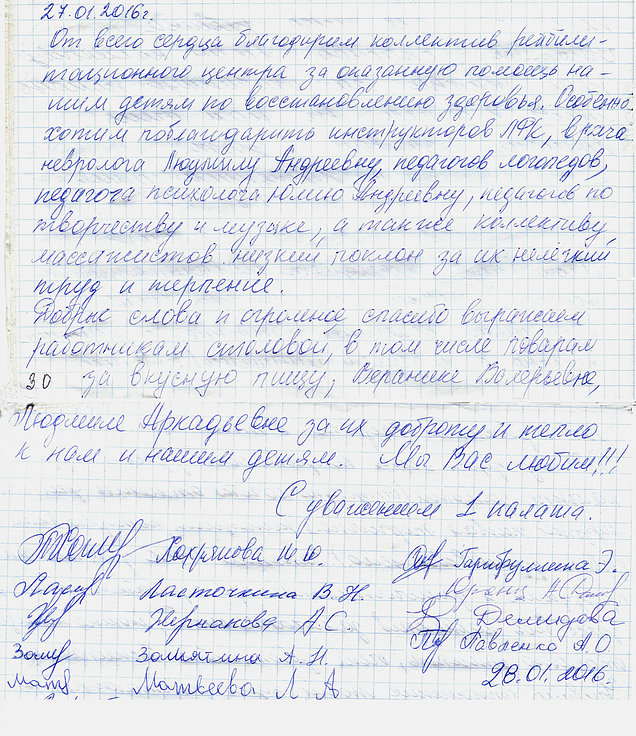 27.01.2016г.
От всего сердца благодарим коллектив реабили-
тационного центра за оказанную помощь на-
шим детям по восстановлению здоровья. Особенно
хотим поблагодарить инструкторов ЛФК, врача
невролога Людмилу Андреевну, педагогов логопедов,
педагога психолога Юлию Андреевну, педагогов по
творчеству и музыке, а также коллективу
массажистов низкий поклон за их нелёгкий
труд и терпение.
Добрые слова и огромное спасибо выражаем
работникам столовой, в том числе поварам
30 за вкусную пищу, Веранике Валерьевне,
Людмиле Аркадьевне за их доброту и тепло
к нам и нашим детям. Мы Вас любим!!!
С уважением 1 палата.
Хохрякова Ю.
Гарифуллина Э.
Ласточкина В.Н.
Жернакова А С.
Демидова
Замятина А.Н.
Павленко А.О
Матвеева Л А
28.01.2016.